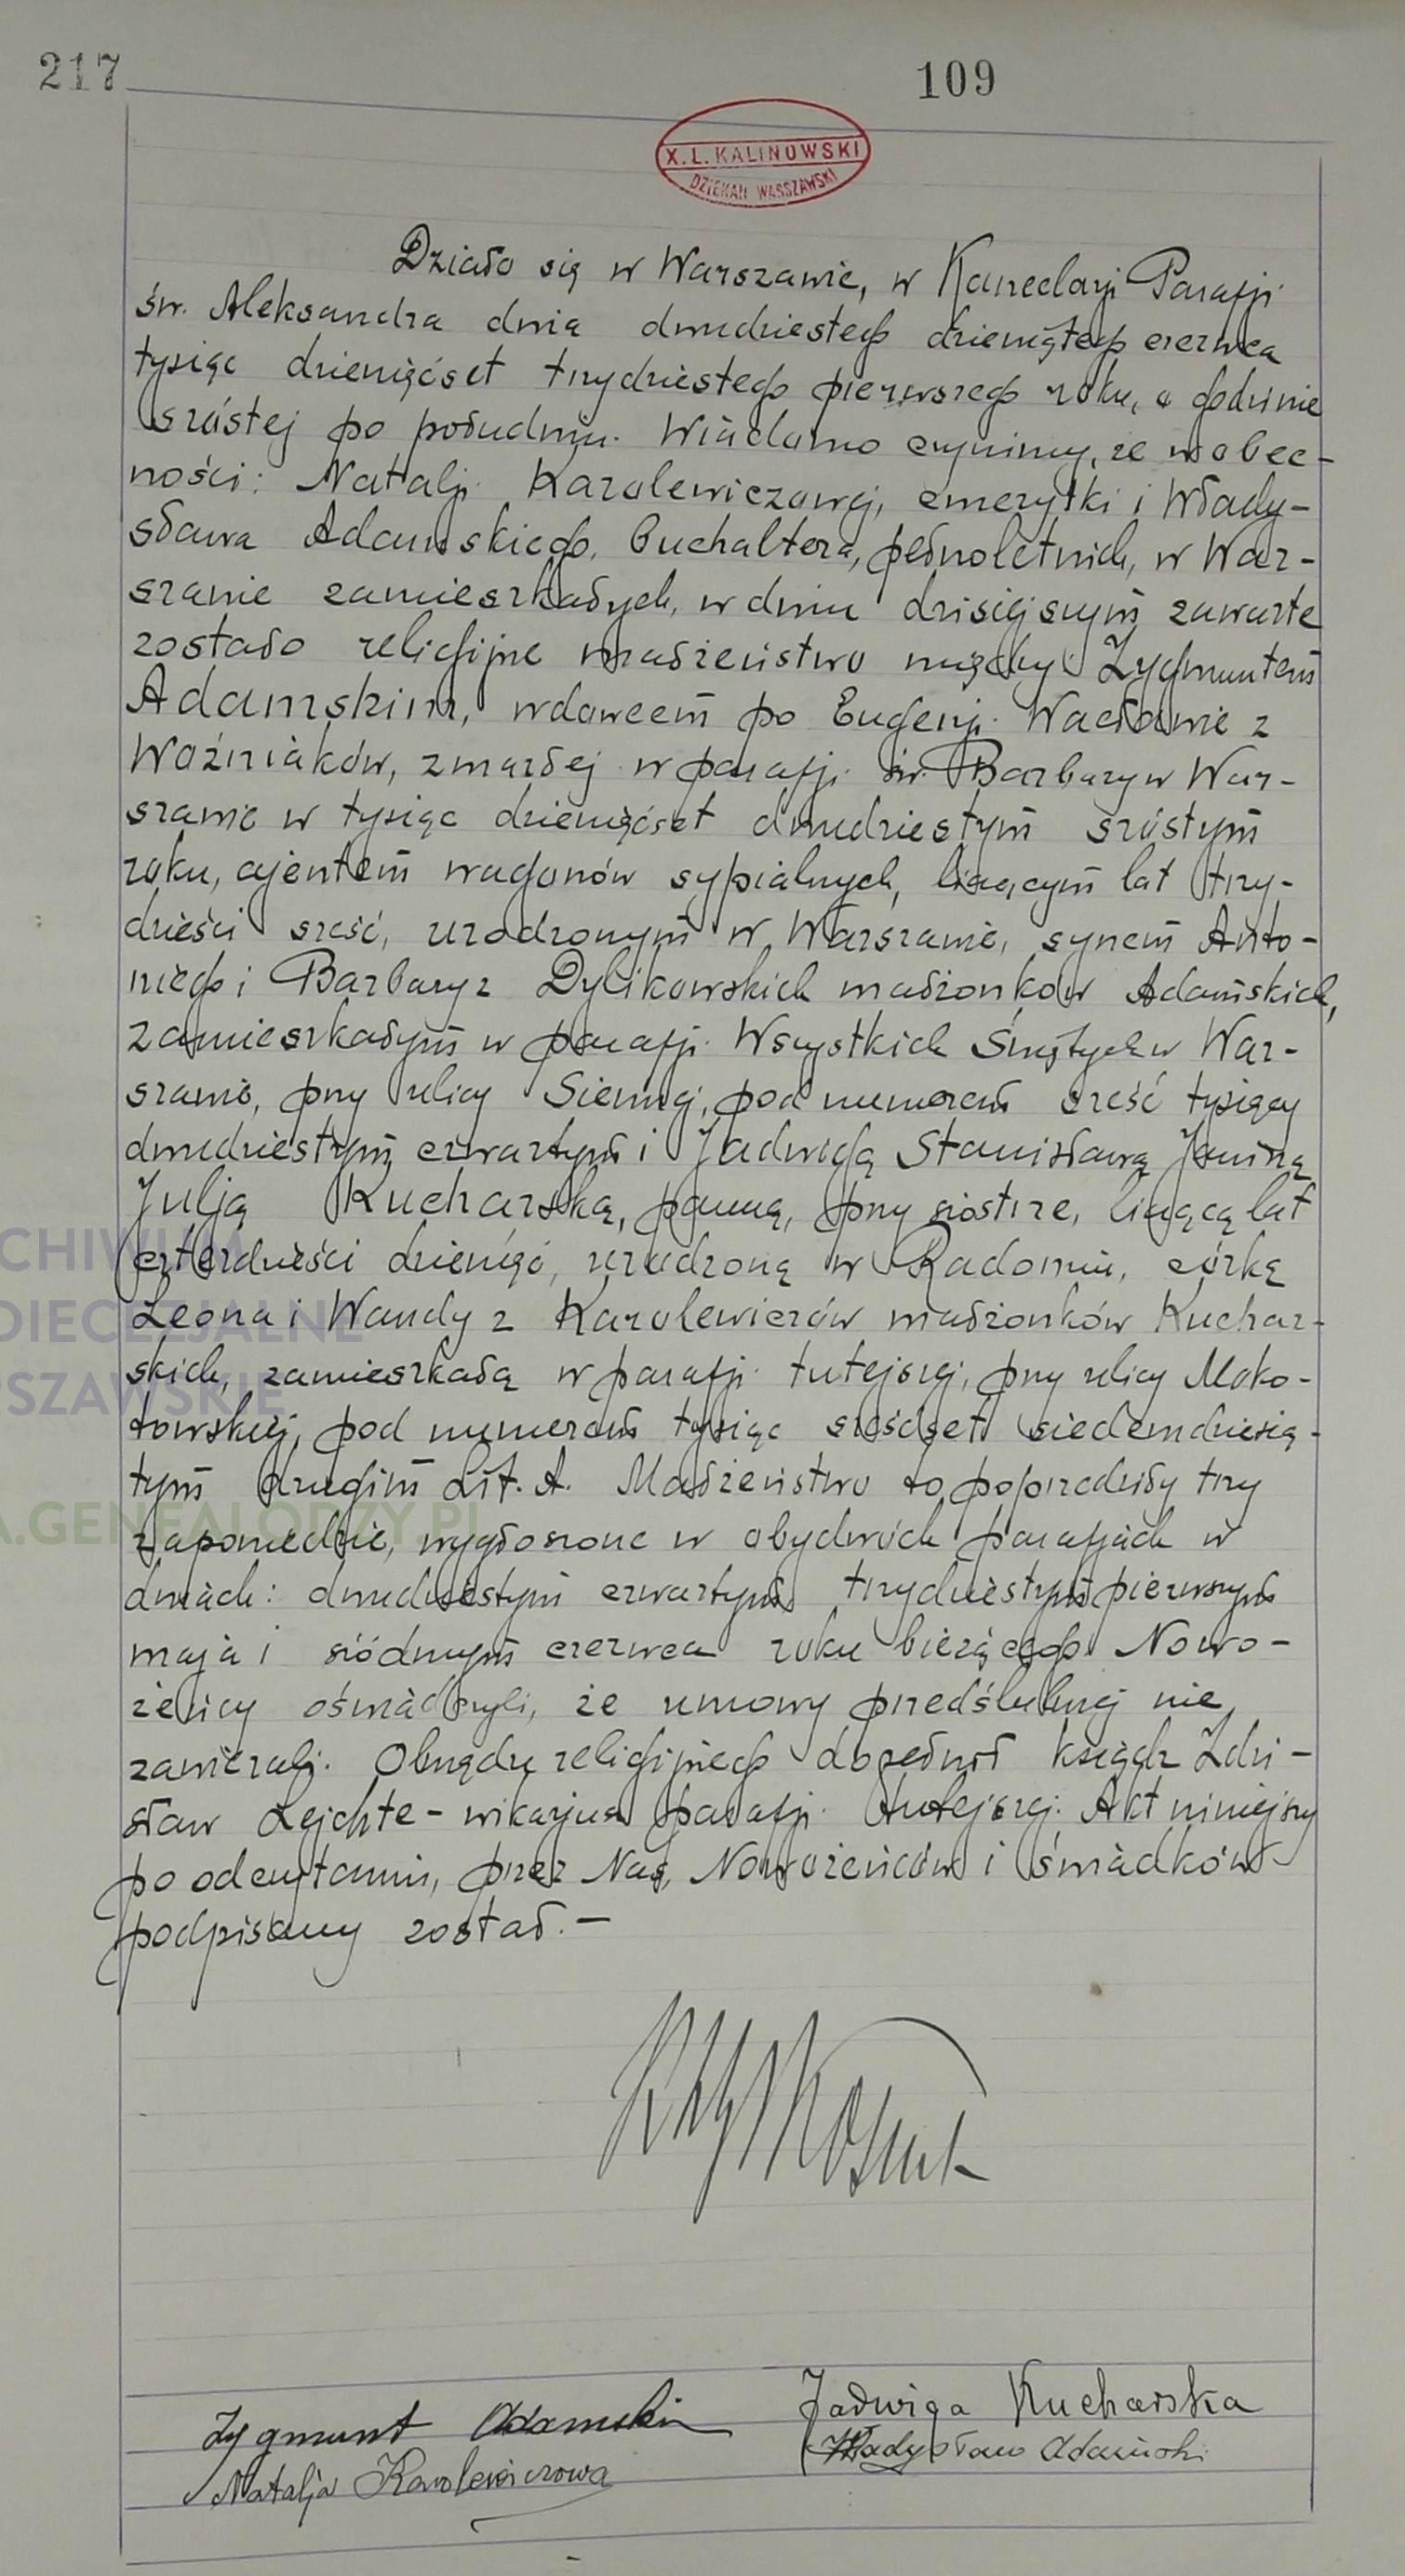 217
109
X. L. KALINOWSKI
DZIEKAN WARSZAWSKI
Działo się w Warszawie, w Kancelarji Parafji
św. Aleksandra dnia dwudziestego dziewiątego czerwca
tysiąc dziewięćset trzydziestego pierwszego roku, o godzinie
szóstej po południu. Wiadomo czynimy, że w obec-
ności: Natalji Karolewiczowej, emerytki i Włady-
sława Adamskiego, buchaltera, pełnoletnich, w War-
szawie zamieszkałych, w dniu dzisiejszym zawarte
zostało religijne małżeństwo między: Zygmuntem
Adamskim, wdowcem po Eugenji Wacławie z
Woźniaków, zmarłej w parafji św. Barbary w War-
szawie w tysiąc dziewięćset dwudziestym szóstym
roku, ajentem wagonów sypialnych, liczącym lat trzy-
dzieści sześć, urodzonym w Warszawie, synem Anto-
niego i Barbary z Dylikowskich małżonków Adamskich,
zamieszkałym w parafji Wszystkich Świętych w War-
szawie, przy ulicy Siennej, pod numerem sześć tysięcy
dwudziestym czwartym i Jadwigą Stanisławą Janiną
Julją Kucharską, panną, przy siostrze, liczącą lat
czterdzieści dziewięć, urodzoną w Radomiu, córką
Leona i Wandy z Karolewiczów małżonków Kuchar-
skich, zamieszkałą w parafji tutejszej, przy ulicy Moko-
towskiej, pod numerem tysiąc sześćset siedemdziesią-
tym drugim Lit. A. Małżeństwo to poprzedziły trzy
zapowiedzie, wygłoszone w obydwóch parafjach w
dniach: dwudziestym czwartym, trzydziestym pierwszym
maja i siódmym czerwca roku bieżącego. Nowo-
żeńcy oświadczyli, że umowy przedślubnej nie
zawierali. Obrzędu religijnego dopełnił ksiądz Zdzi-
sław Lejchte - wikarjusz parafji tutejszej. Akt niniejszy
po odczytaniu, przez Nas, Nowożeńców i świadków
podpisany został. -
Zygmunt Adamski
Jadwiga Kucharska
Natalja Karolewiczowa
Władysław Adamski
CHIWUM
DIECEZJALNE
RSZAWSKIE
A.GENEALODZY.PL